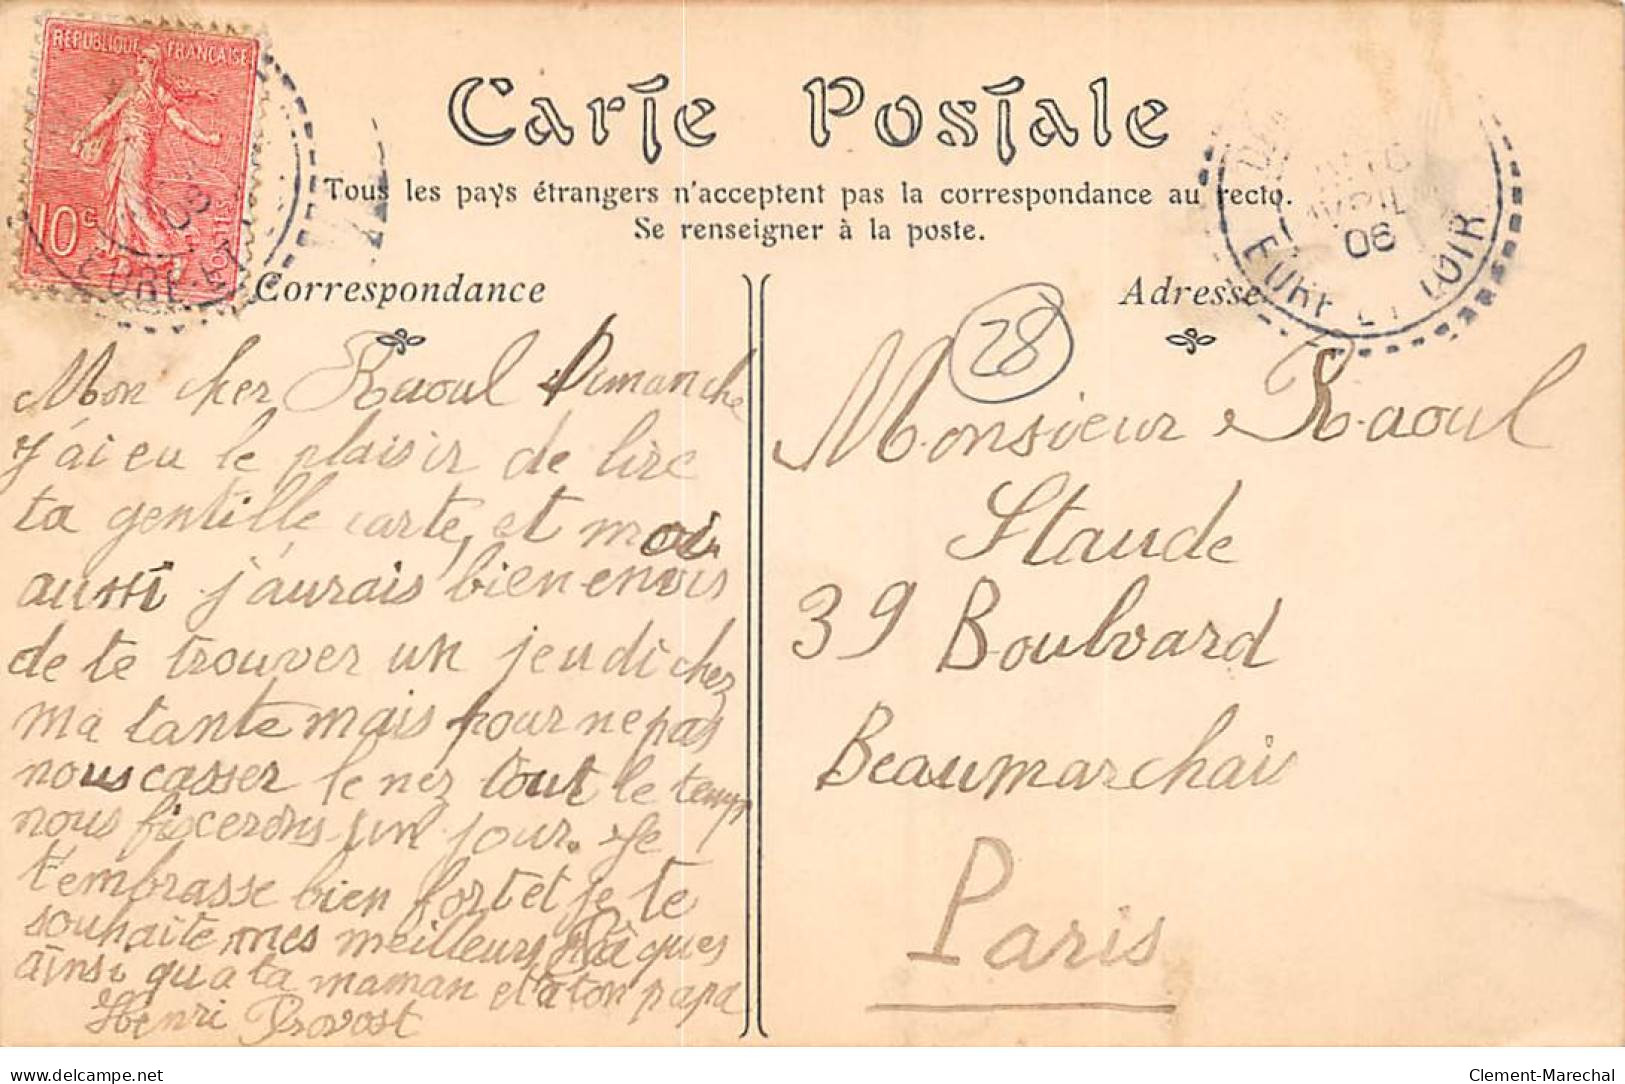 RÉPUBLIQUE FRANÇAISE
10c POSTES
EURE-ET-
Carte Postale
Tous les pays étrangers n'acceptent pas la correspondance au recto.
Se renseigner à la poste.
AVRIL
06
EURE ET LOIR
Correspondance
Mon cher Raoul Dimanche
j'ai eu le plaisir de lire
ta gentille carte, et moi
aussi j'aurais bien envis
de te trouver un jeudi chez
ma tante mais pour ne pas
nous casser le nez tout le temps
nous fixcerons un jour. Je
t'embrasse bien fort et je te
souhaite mes meilleurs Pâques
ainsi qu'a ta maman et a ton papa
Henri Provost
Adresse
28
Monsieur Raoul
Staude
39 Boulvard
Beaumarchais
Paris
delcampe.net
Clement-Marechal